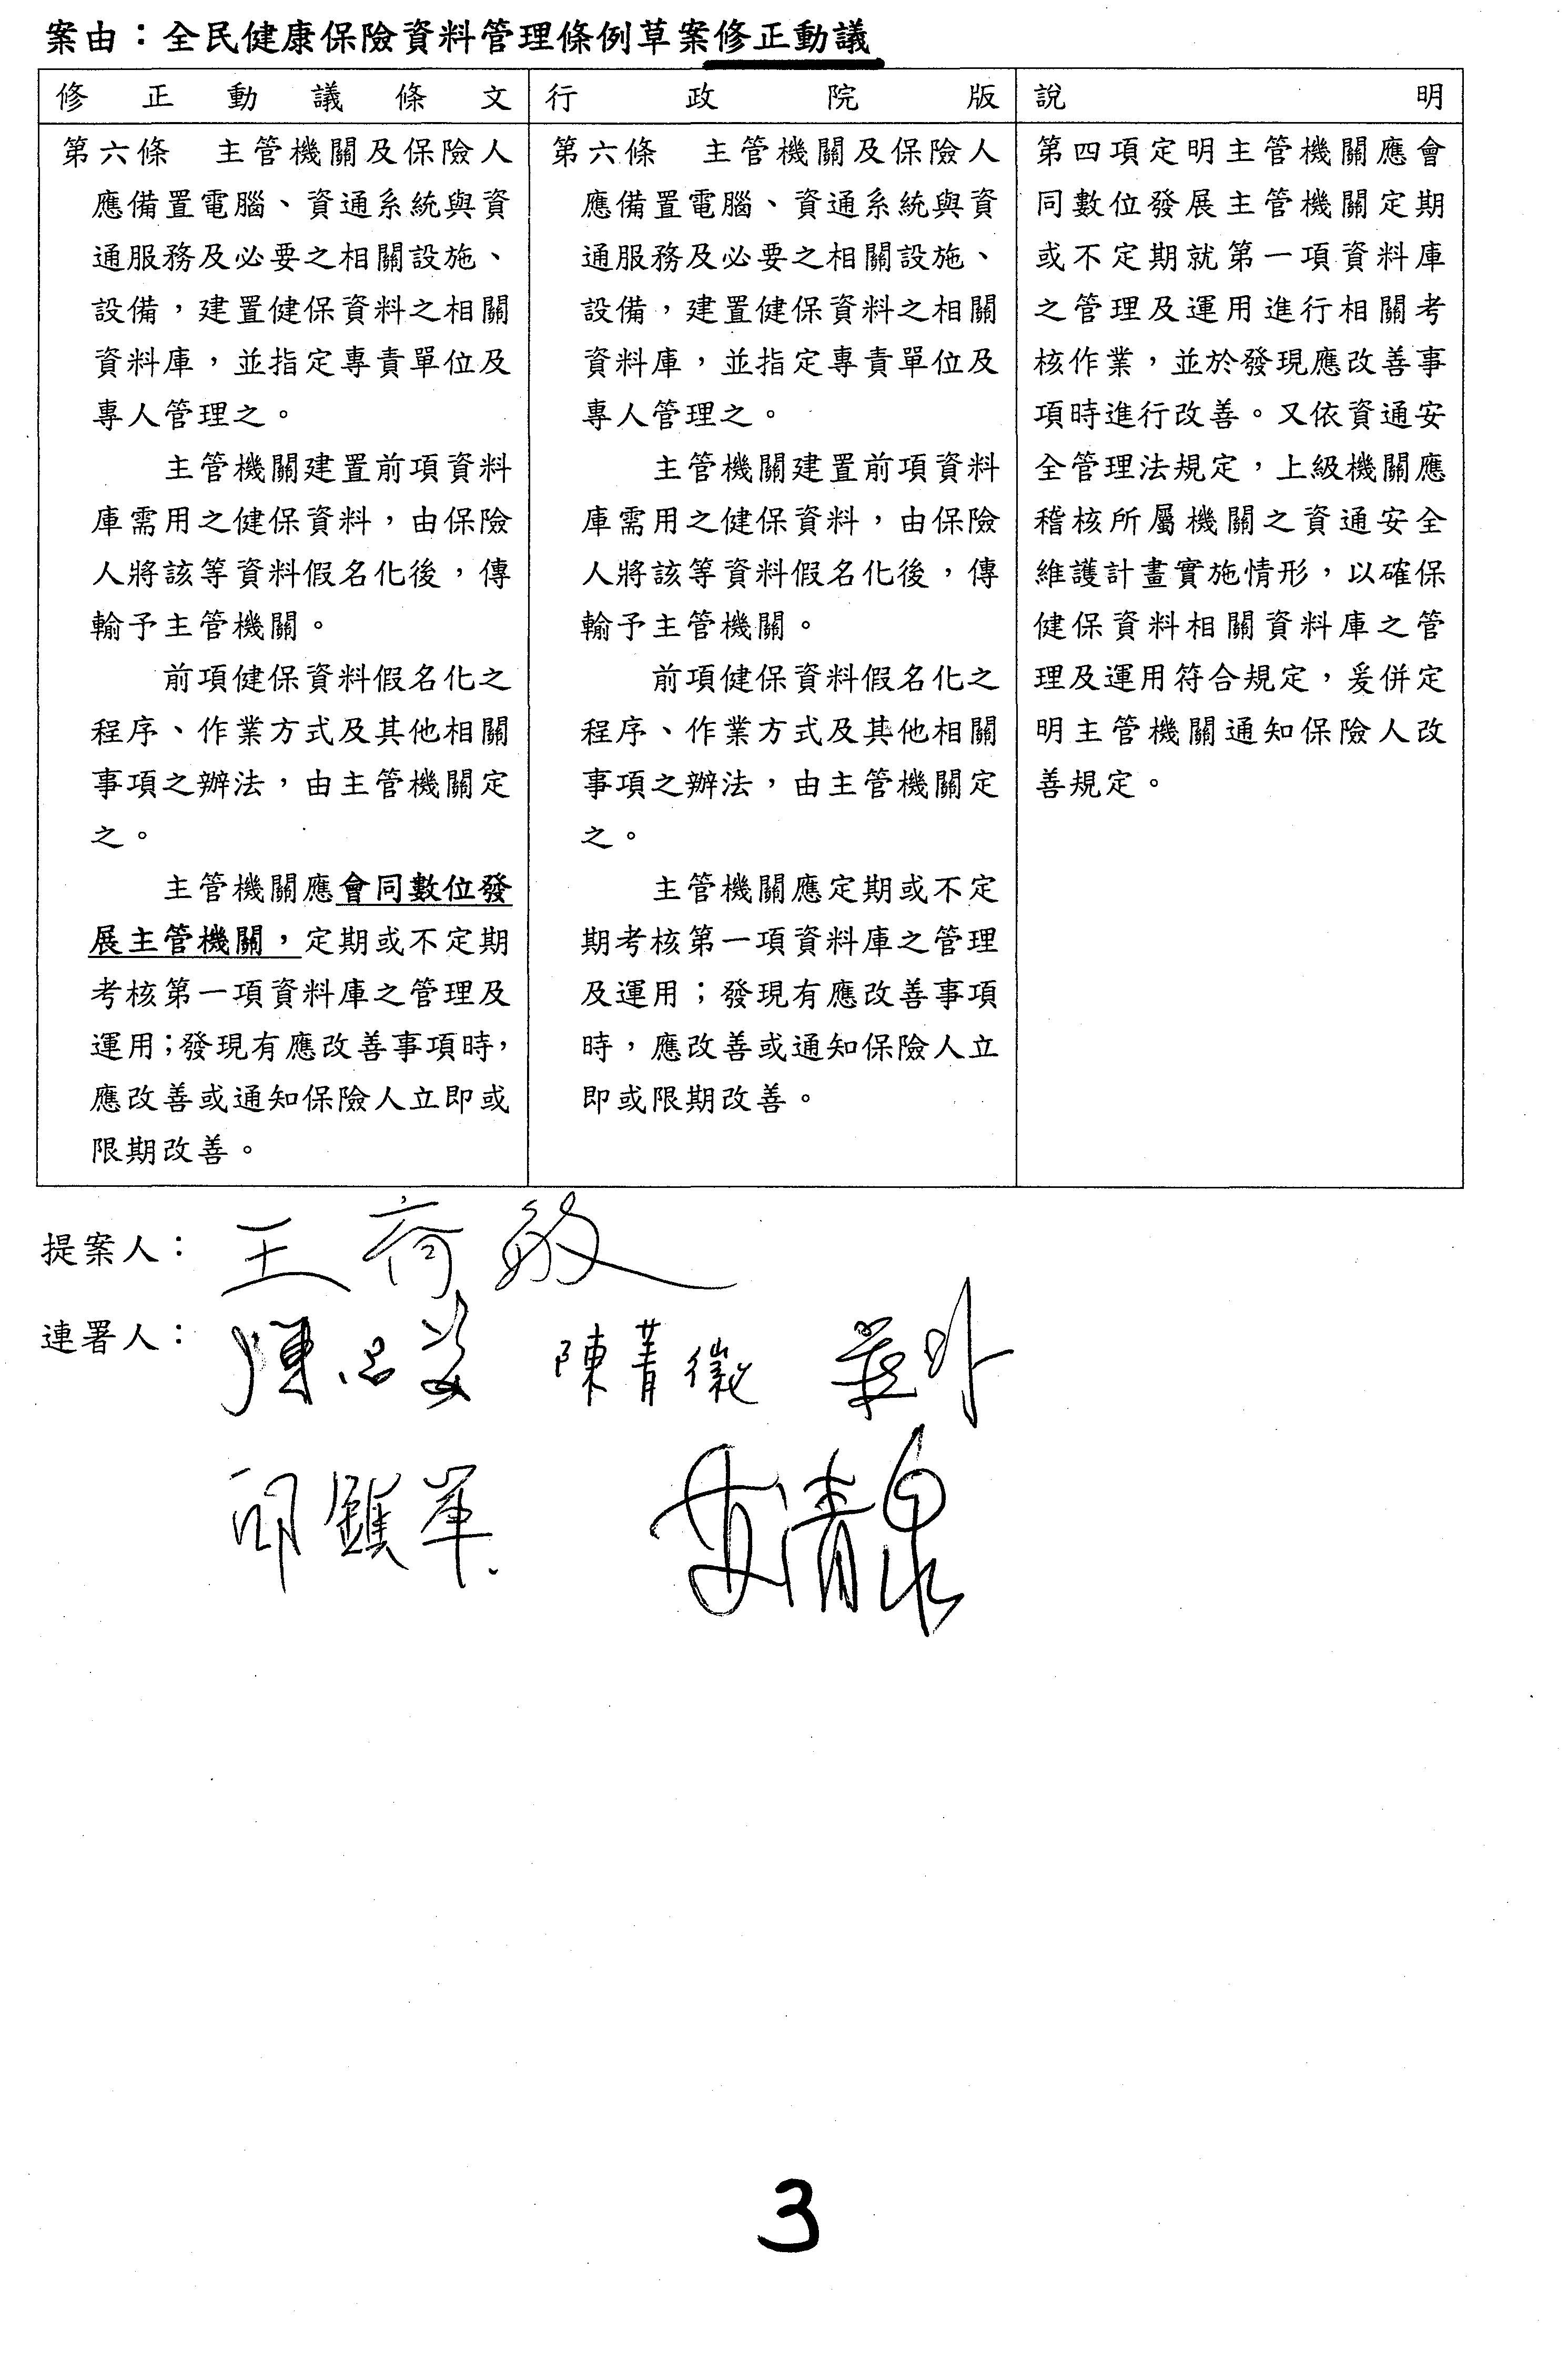 案由：全民健康保險資料管理條例草案修正動議
修正動議條文
第六條　主管機關及保險人
應備置電腦、資通系統與資
通服務及必要之相關設施、
設備，建置健保資料之相關
資料庫，並指定專責單位及
專人管理之。
主管機關建置前項資料
庫需用之健保資料，由保險
人將該等資料假名化後，傳
輸予主管機關。
前項健保資料假名化之
程序、作業方式及其他相關
事項之辦法，由主管機關定
之。
主管機關應會同數位發
展主管機關，定期或不定期
考核第一項資料庫之管理及
運用；發現有應改善事項時，
應改善或通知保險人立即或
限期改善。
行政院版
第六條　主管機關及保險人
應備置電腦、資通系統與資
通服務及必要之相關設施、
設備，建置健保資料之相關
資料庫，並指定專責單位及
專人管理之。
主管機關建置前項資料
庫需用之健保資料，由保險
人將該等資料假名化後，傳
輸予主管機關。
前項健保資料假名化之
程序、作業方式及其他相關
事項之辦法，由主管機關定
之。
主管機關應定期或不定
期考核第一項資料庫之管理
及運用；發現有應改善事項
時，應改善或通知保險人立
即或限期改善。
說明
第四項定明主管機關應會
同數位發展主管機關定期
或不定期就第一項資料庫
之管理及運用進行相關考
核作業，並於發現應改善事
項時進行改善。又依資通安
全管理法規定，上級機關應
稽核所屬機關之資通安全
維護計畫實施情形，以確保
健保資料相關資料庫之管
理及運用符合規定，爰併定
明主管機關通知保險人改
善規定。
提案人：
連署人：
陳菁徽
邱鎮軍
清泉
3